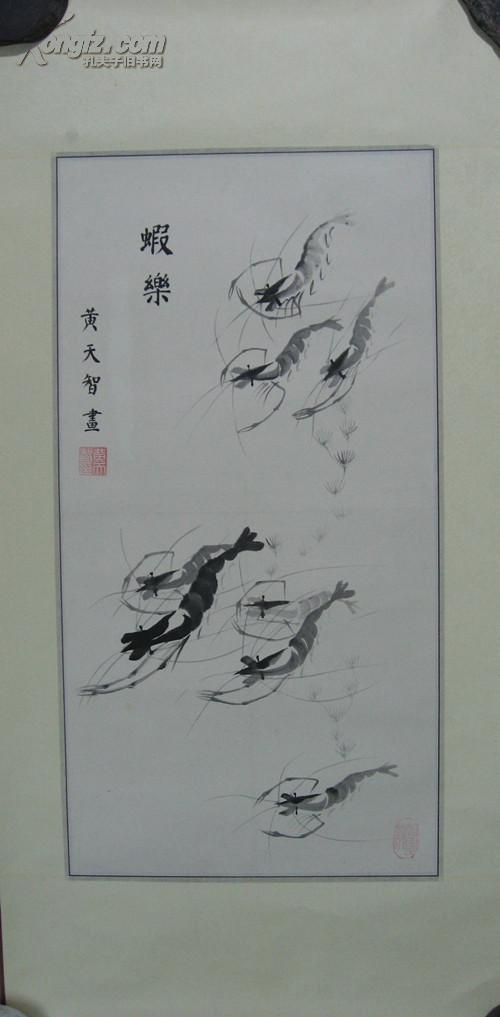 Kongfz.com
孔夫子旧书网
蝦樂
黄天智畫